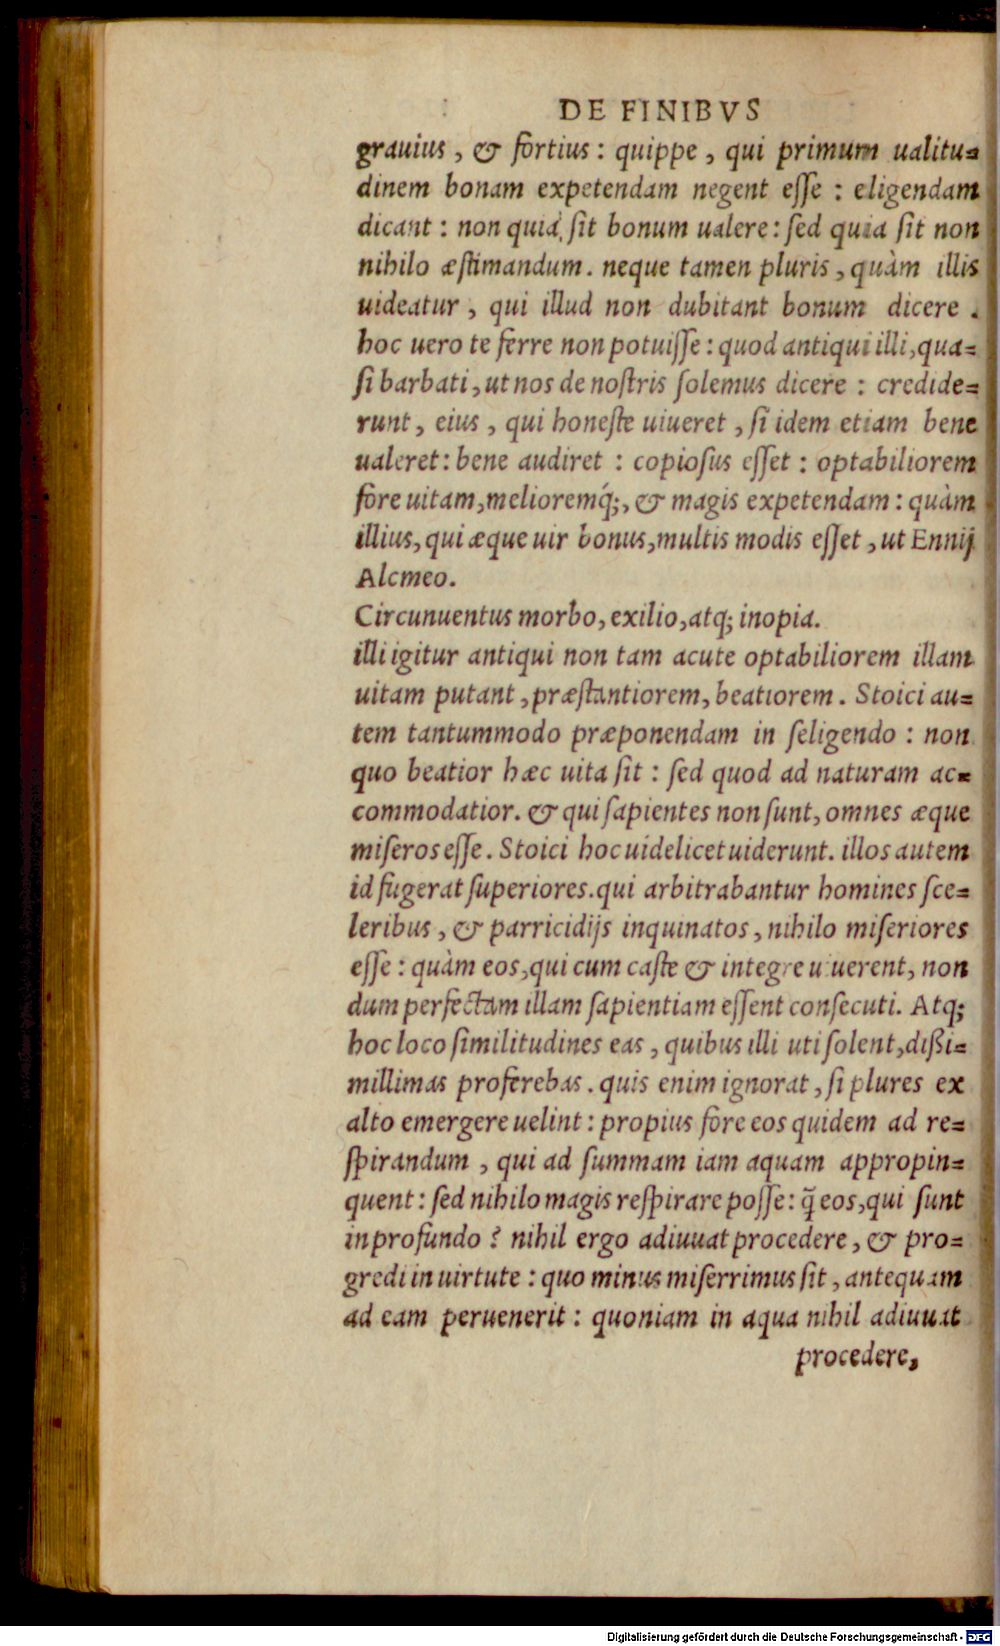 DE FINIBVS
grauius, & fortius: quippe, qui primum ualitu=
dinem bonam expetendam negent esse: eligendam
dicant: non quia, sit bonum ualere: sed quia sit non
nihilo æstimandum. neque tamen pluris, quàm illis
uideatur, qui illud non dubitant bonum dicere.
hoc uero te ferre non potuisse: quod antiqui illi, qua=
si barbati, ut nos de nostris solemus dicere: credide=
runt, eius, qui honeste uiueret, si idem etiam bene
ualeret: bene audiret: copiosus esset: optabiliorem
fore uitam, melioremq́;, & magis expetendam: quàm
illius, qui æque uir bonus, multis modis esset, ut Ennij
Alcmeo.
Circunuentus morbo, exilio, atq; inopia.
illi igitur antiqui non tam acute optabiliorem illam
uitam putant, præstantiorem, beatiorem. Stoici au=
tem tantummodo præponendam in seligendo: non
quo beatior hæc uita sit: sed quod ad naturam ac=
commodatior. & qui sapientes non sunt, omnes æque
miseros esse. Stoici hoc uidelicet uiderunt. illos autem
id fugerat superiores. qui arbitrabantur homines sce=
leribus, & parricidijs inquinatos, nihilo miseriores
esse: quàm eos, qui cum caste & integre uiuerent, non
dum perfectam illam sapientiam essent consecuti. Atq;
hoc loco similitudines eas, quibus illi uti solent, dißi=
millimas proferebas. quis enim ignorat, si plures ex
alto emergere uelint: propius fore eos quidem ad re=
spirandum, qui ad summam iam aquam appropin=
quent: sed nihilo magis respirare posse: q̃ eos, qui sunt
in profundo? nihil ergo adiuuat procedere, & pro=
gredi in uirtute: quo minus miserrimus sit, antequam
ad eam peruenerit: quoniam in aqua nihil adiuuat
procedere,
Digitalisierung gefördert durch die Deutsche Forschungsgemeinschaft - DFG